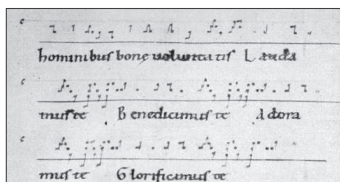 hominibus bone voluntatis Lauda
mus te Benedicimus te Adora
mus te Glorificamus te